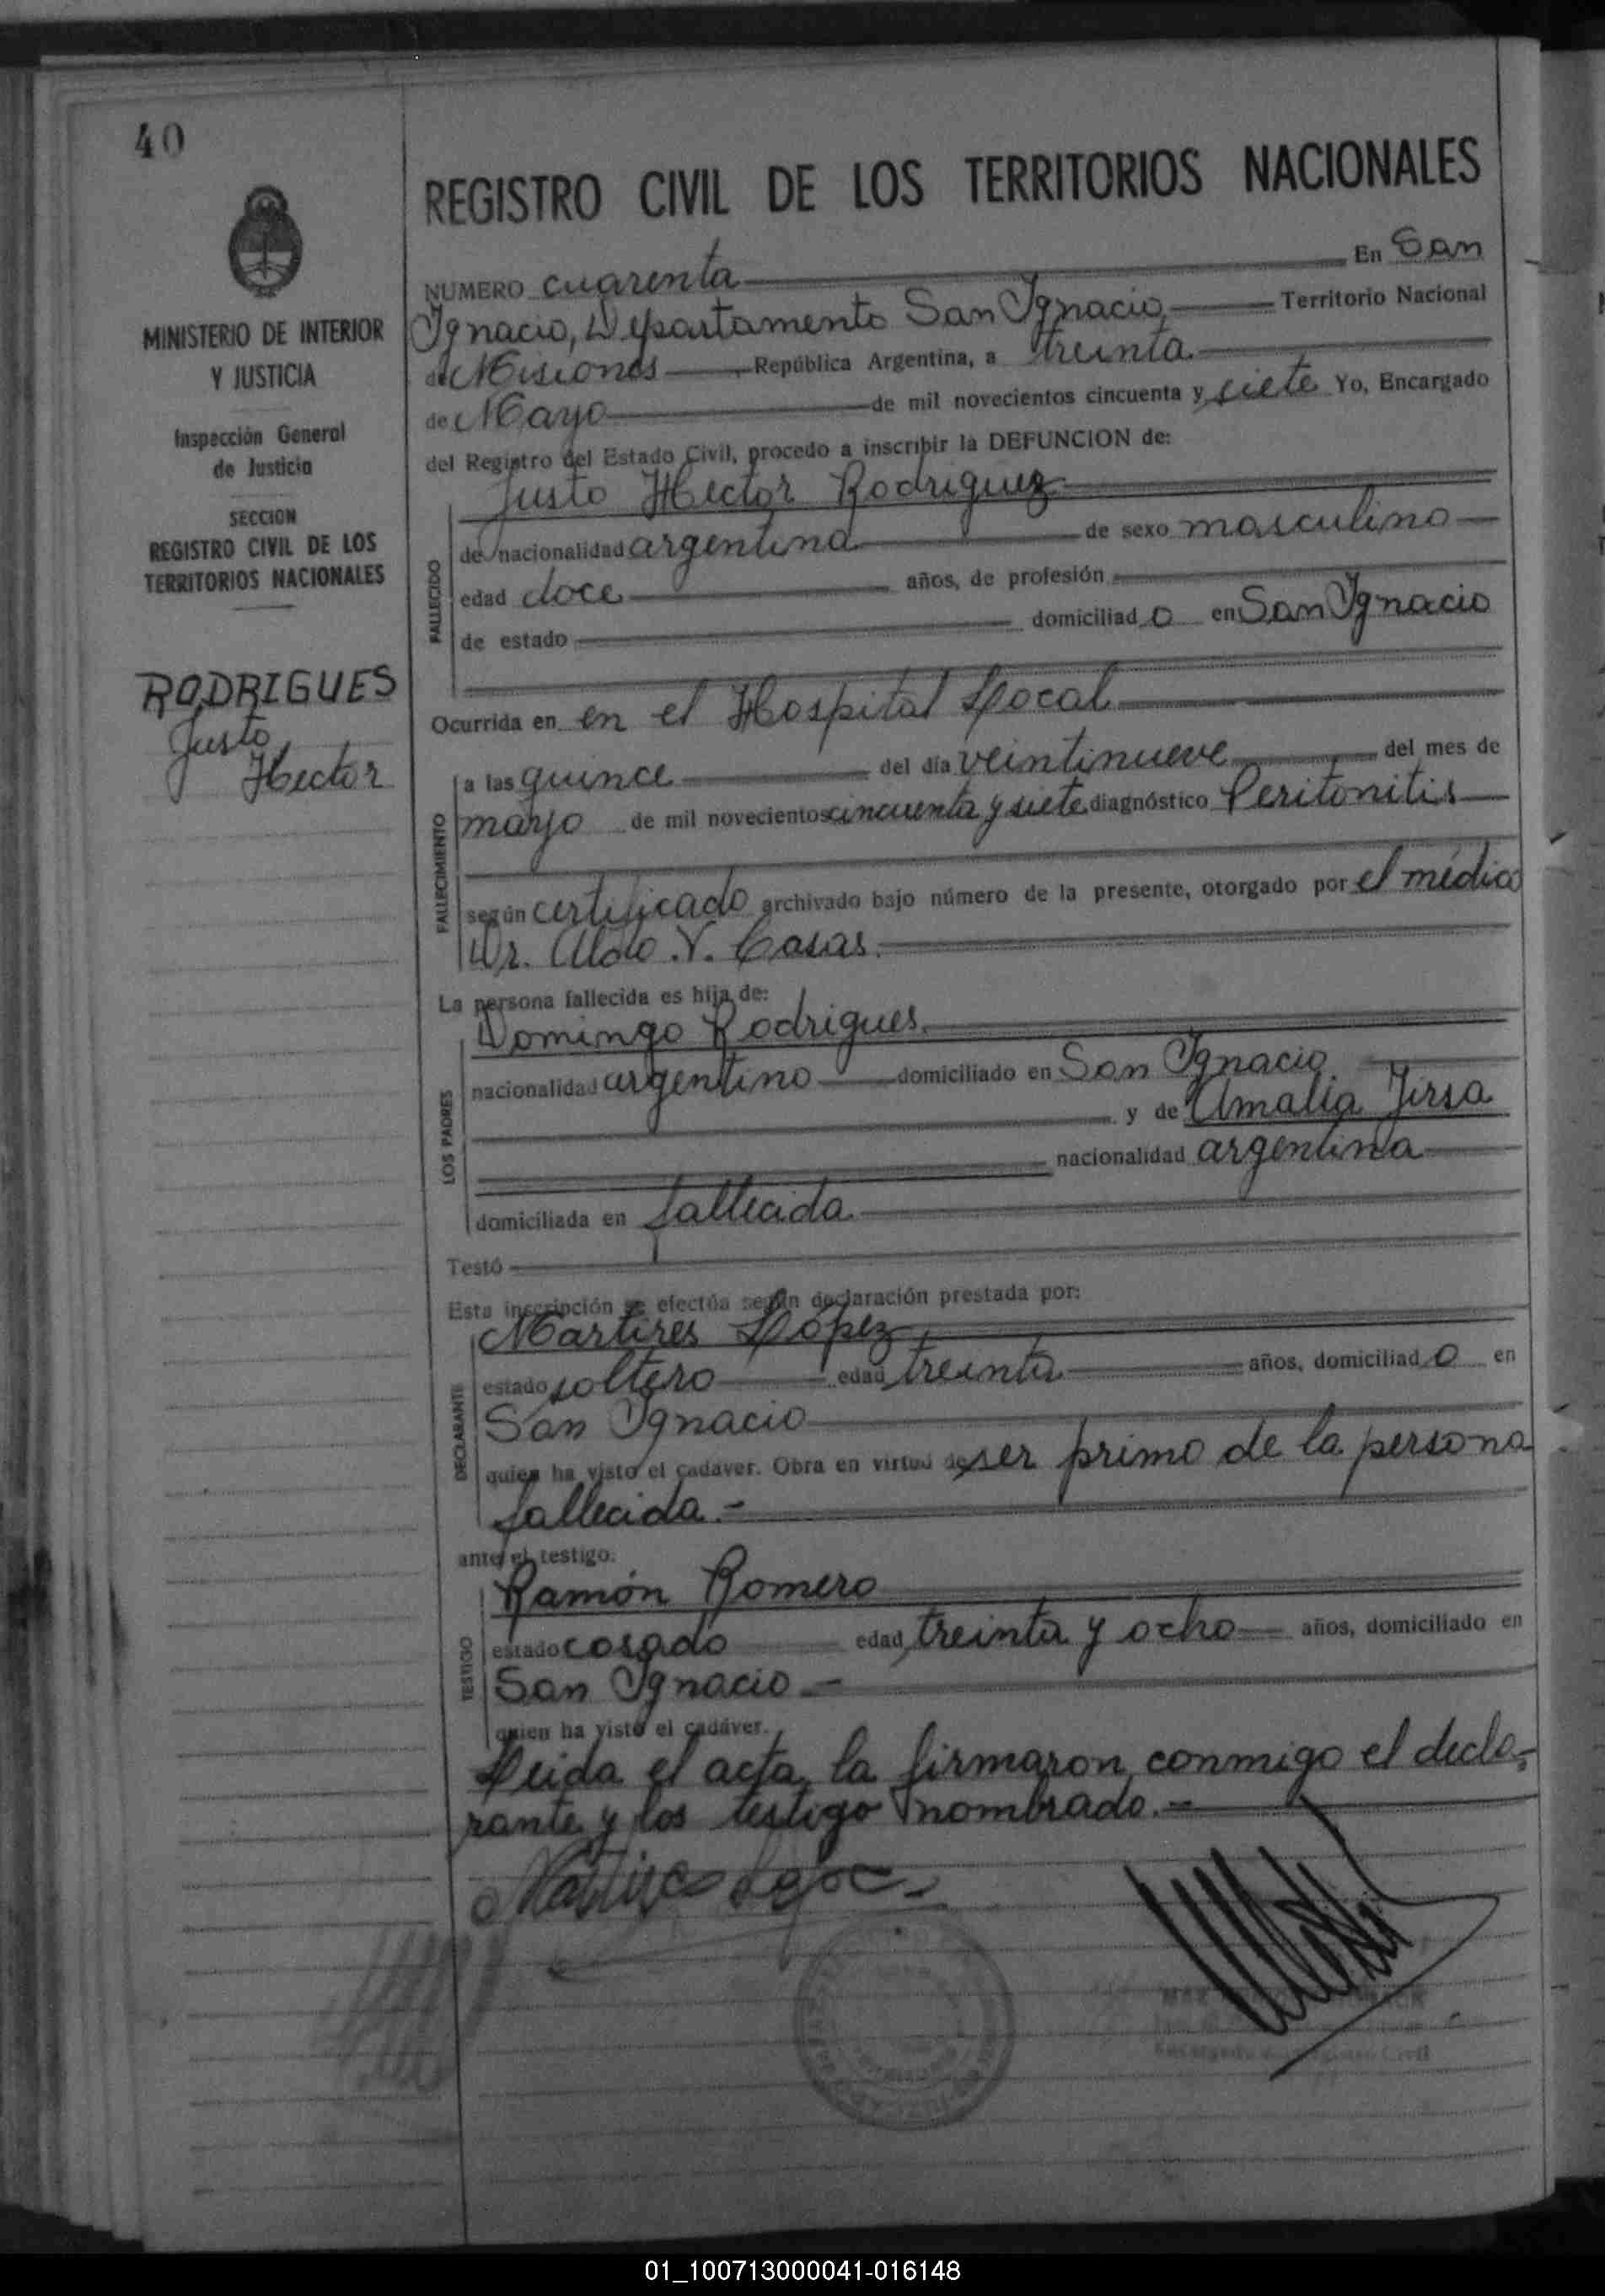 40
REGISTRO CIVIL DE LOS TERRITORIOS NACIONALES
MINISTERIO DE INTERIOR
Y JUSTICIA
Inspección General
de Justicia
SECCION
REGISTRO CIVIL DE LOS
TERRITORIOS NACIONALES
RODRIGUES
Justo
Hector
NUMERO cuarenta En San
Ignacio, Departamento San Ignacio Territorio Nacional
de Misiones República Argentina, a treinta
de Mayo de mil novecientos cincuenta y siete Yo, Encargado
del Registro del Estado Civil, procedo a inscribir la DEFUNCION de:
Justo Hector Rodriguez
FALLECIDO
de nacionalidad argentina de sexo masculino
edad doce años, de profesión
de estado domiciliado en San Ignacio
Ocurrida en en el Hospital Local
FALLECIMIENTO
a las quince del día veintinueve del mes de
mayo de mil novecientos cincuenta y siete diagnóstico Peritonitis
según certificado archivado bajo número de la presente, otorgado por el médico
Dr. Aldo V. Casas.
La persona fallecida es hija de:
LOS PADRES
Domingo Rodrigues
nacionalidad argentino domiciliado en San Ignacio
y de Amalia Jirsa
nacionalidad argentina
domiciliada en fallecida
Testó
Esta inscripción se efectúa según declaración prestada por:
DECLARANTE
Martires López
estado soltero edad treinta años, domiciliado en
San Ignacio
quien ha visto el cadaver. Obra en virtud de ser primo de la persona
fallecida.-
ante el testigo:
TESTIGO
Ramón Romero
estado casado edad treinta y ocho años, domiciliado en
San Ignacio.-
quien ha visto el cadáver.
Leida el acta, la firmaron conmigo el decla-
rante y los testigo nombrado.-
Martires Lopez
Encargado Civil
01_100713000041-016148